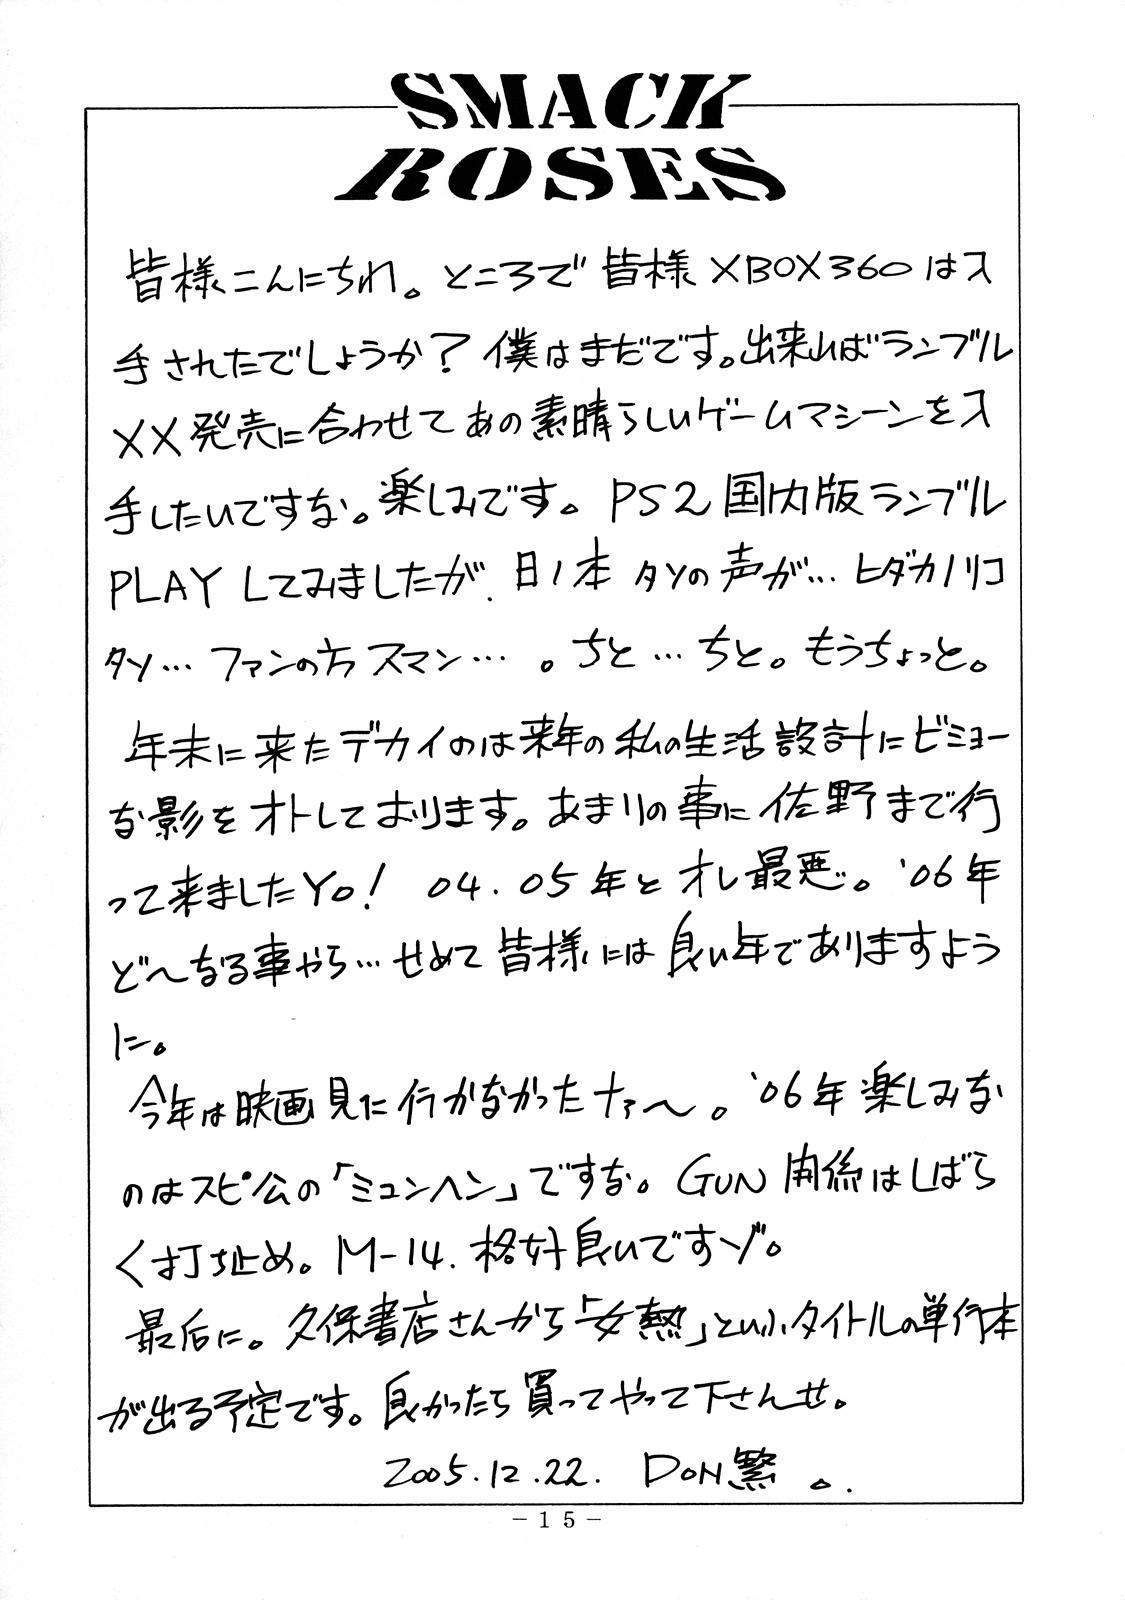 SMACK
ROSES
皆様こんにちわ。ところで皆様XBOX360は入
手されたでしょうか？僕はまだです。出来ればランブル
XX発売に合わせてあの素晴らしいゲームマシーンを入
手したいですな。楽しみです。PS2国内版ランブル
PLAYしてみましたが、日ノ本タソの声が…ヒダカノリコ
タソ…ファンの方スマン…。ちと…ちと。もうちょっと。
年末に来たデカイのは来年の私の生活設計にビミョー
な影をオトしております。あまりの事に佐野まで行
って来ましたYO! 04.05年とオレ最悪。'06年
ど〜なる事やら…せめて皆様には良い年でありますよう
に。
今年は映画見に行かなかったナァ〜。'06年楽しみな
のはスピ公の「ミュンヘン」ですな。GUN関係はしばら
く打ち止め。M-14.格好良いですゾ。
最后に。久保書店さんから「女熱」というタイトルの単行本
が出る予定です。良かったら買ってやって下さんせ。
2005.12.22. DON繁。.
-15-